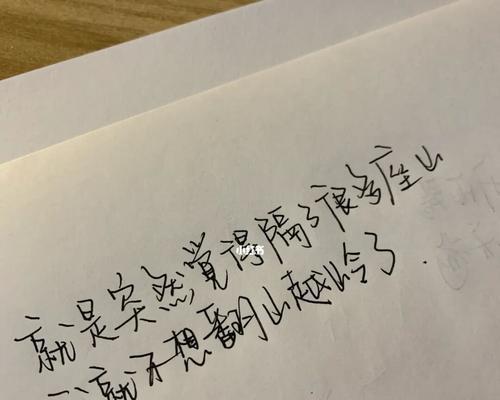 就是突然觉得隔了很多座山
小红书
就不想翻山越岭了.